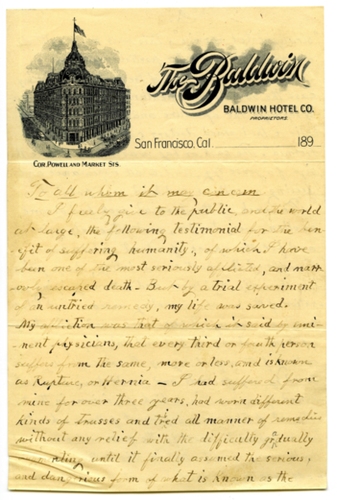 The Baldwin
BALDWIN HOTEL CO.
PROPRIETORS
San Francisco, Cal. 189
COR. POWELL AND MARKET STS.
To all whom it may concern
I freely give to the public, and the world
at large, the following testimonial for the ben-
efit of suffering humanity, of which I have
been one of the most seriously afflicted, and narr-
owly escaped death - But by a trial experiment
of an untried remedy, my life was saved.
My affliction was that of which it is said by emi-
nent physicians, that every third or fourth person
suffers form the same, more or less, and is known
as Rupture, or Hernia - I had suffered from
mine for over three years, had worn different
kinds of trusses and tried all manner of remedies
without any relief with the difficulty gradually
until it finally assumed the serious,
and dangerous form of what is known as the